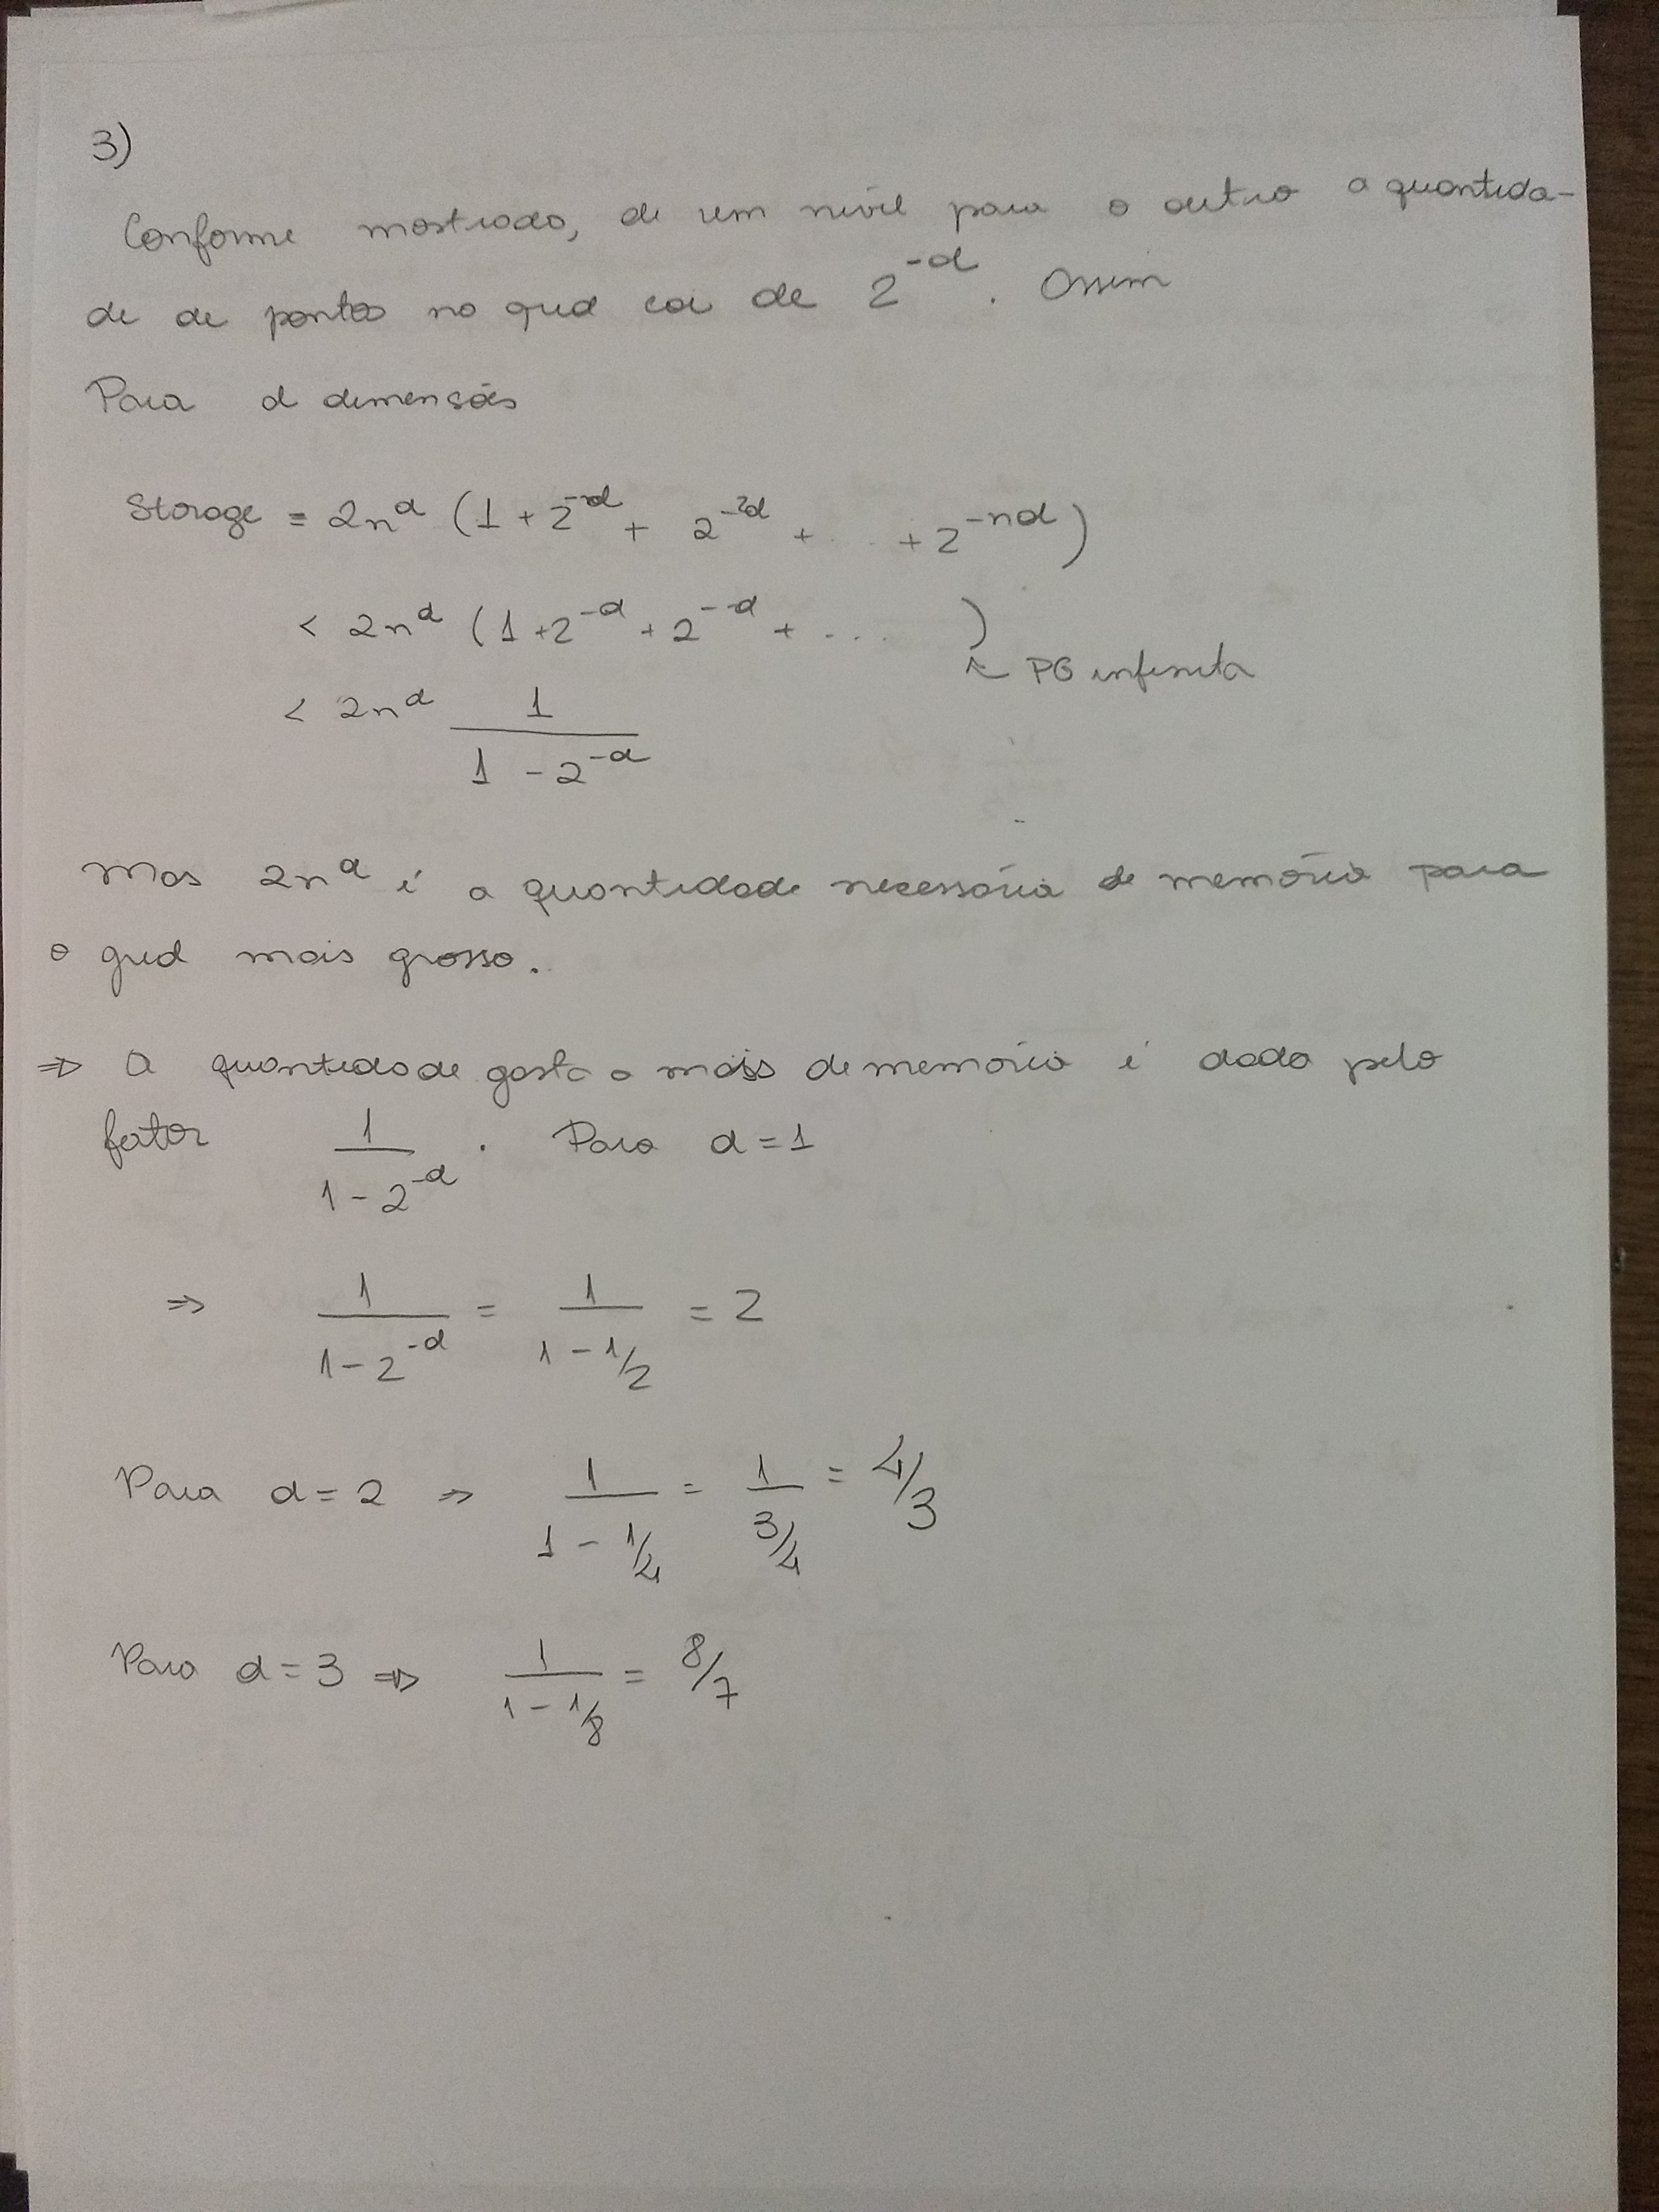 3)
Conforme mostrado, de um nível para o outro a quantida-
de de pontos no grid cai de 2^{-d}. Assim
Para d dimensões
Storage = 2n^d (1 + 2^{-d} + 2^{-2d} + ... + 2^{-nd})
< 2n^d (1 + 2^{-d} + 2^{-d} + ... )
↖ PG infinita
< 2n^d \frac{1}{1 - 2^{-d}}
Mas 2n^d é a quantidade necessária de memória para
o grid mais grosso.
⇒ A quantidade gasta a mais de memória é dada pelo
fator \frac{1}{1 - 2^{-d}} . Para d = 1
⇒ \frac{1}{1 - 2^{-d}} = \frac{1}{1 - 1/2} = 2
Para d = 2 ⇒ \frac{1}{1 - 1/4} = \frac{1}{3/4} = 4/3
Para d = 3 ⇒ \frac{1}{1 - 1/8} = 8/7